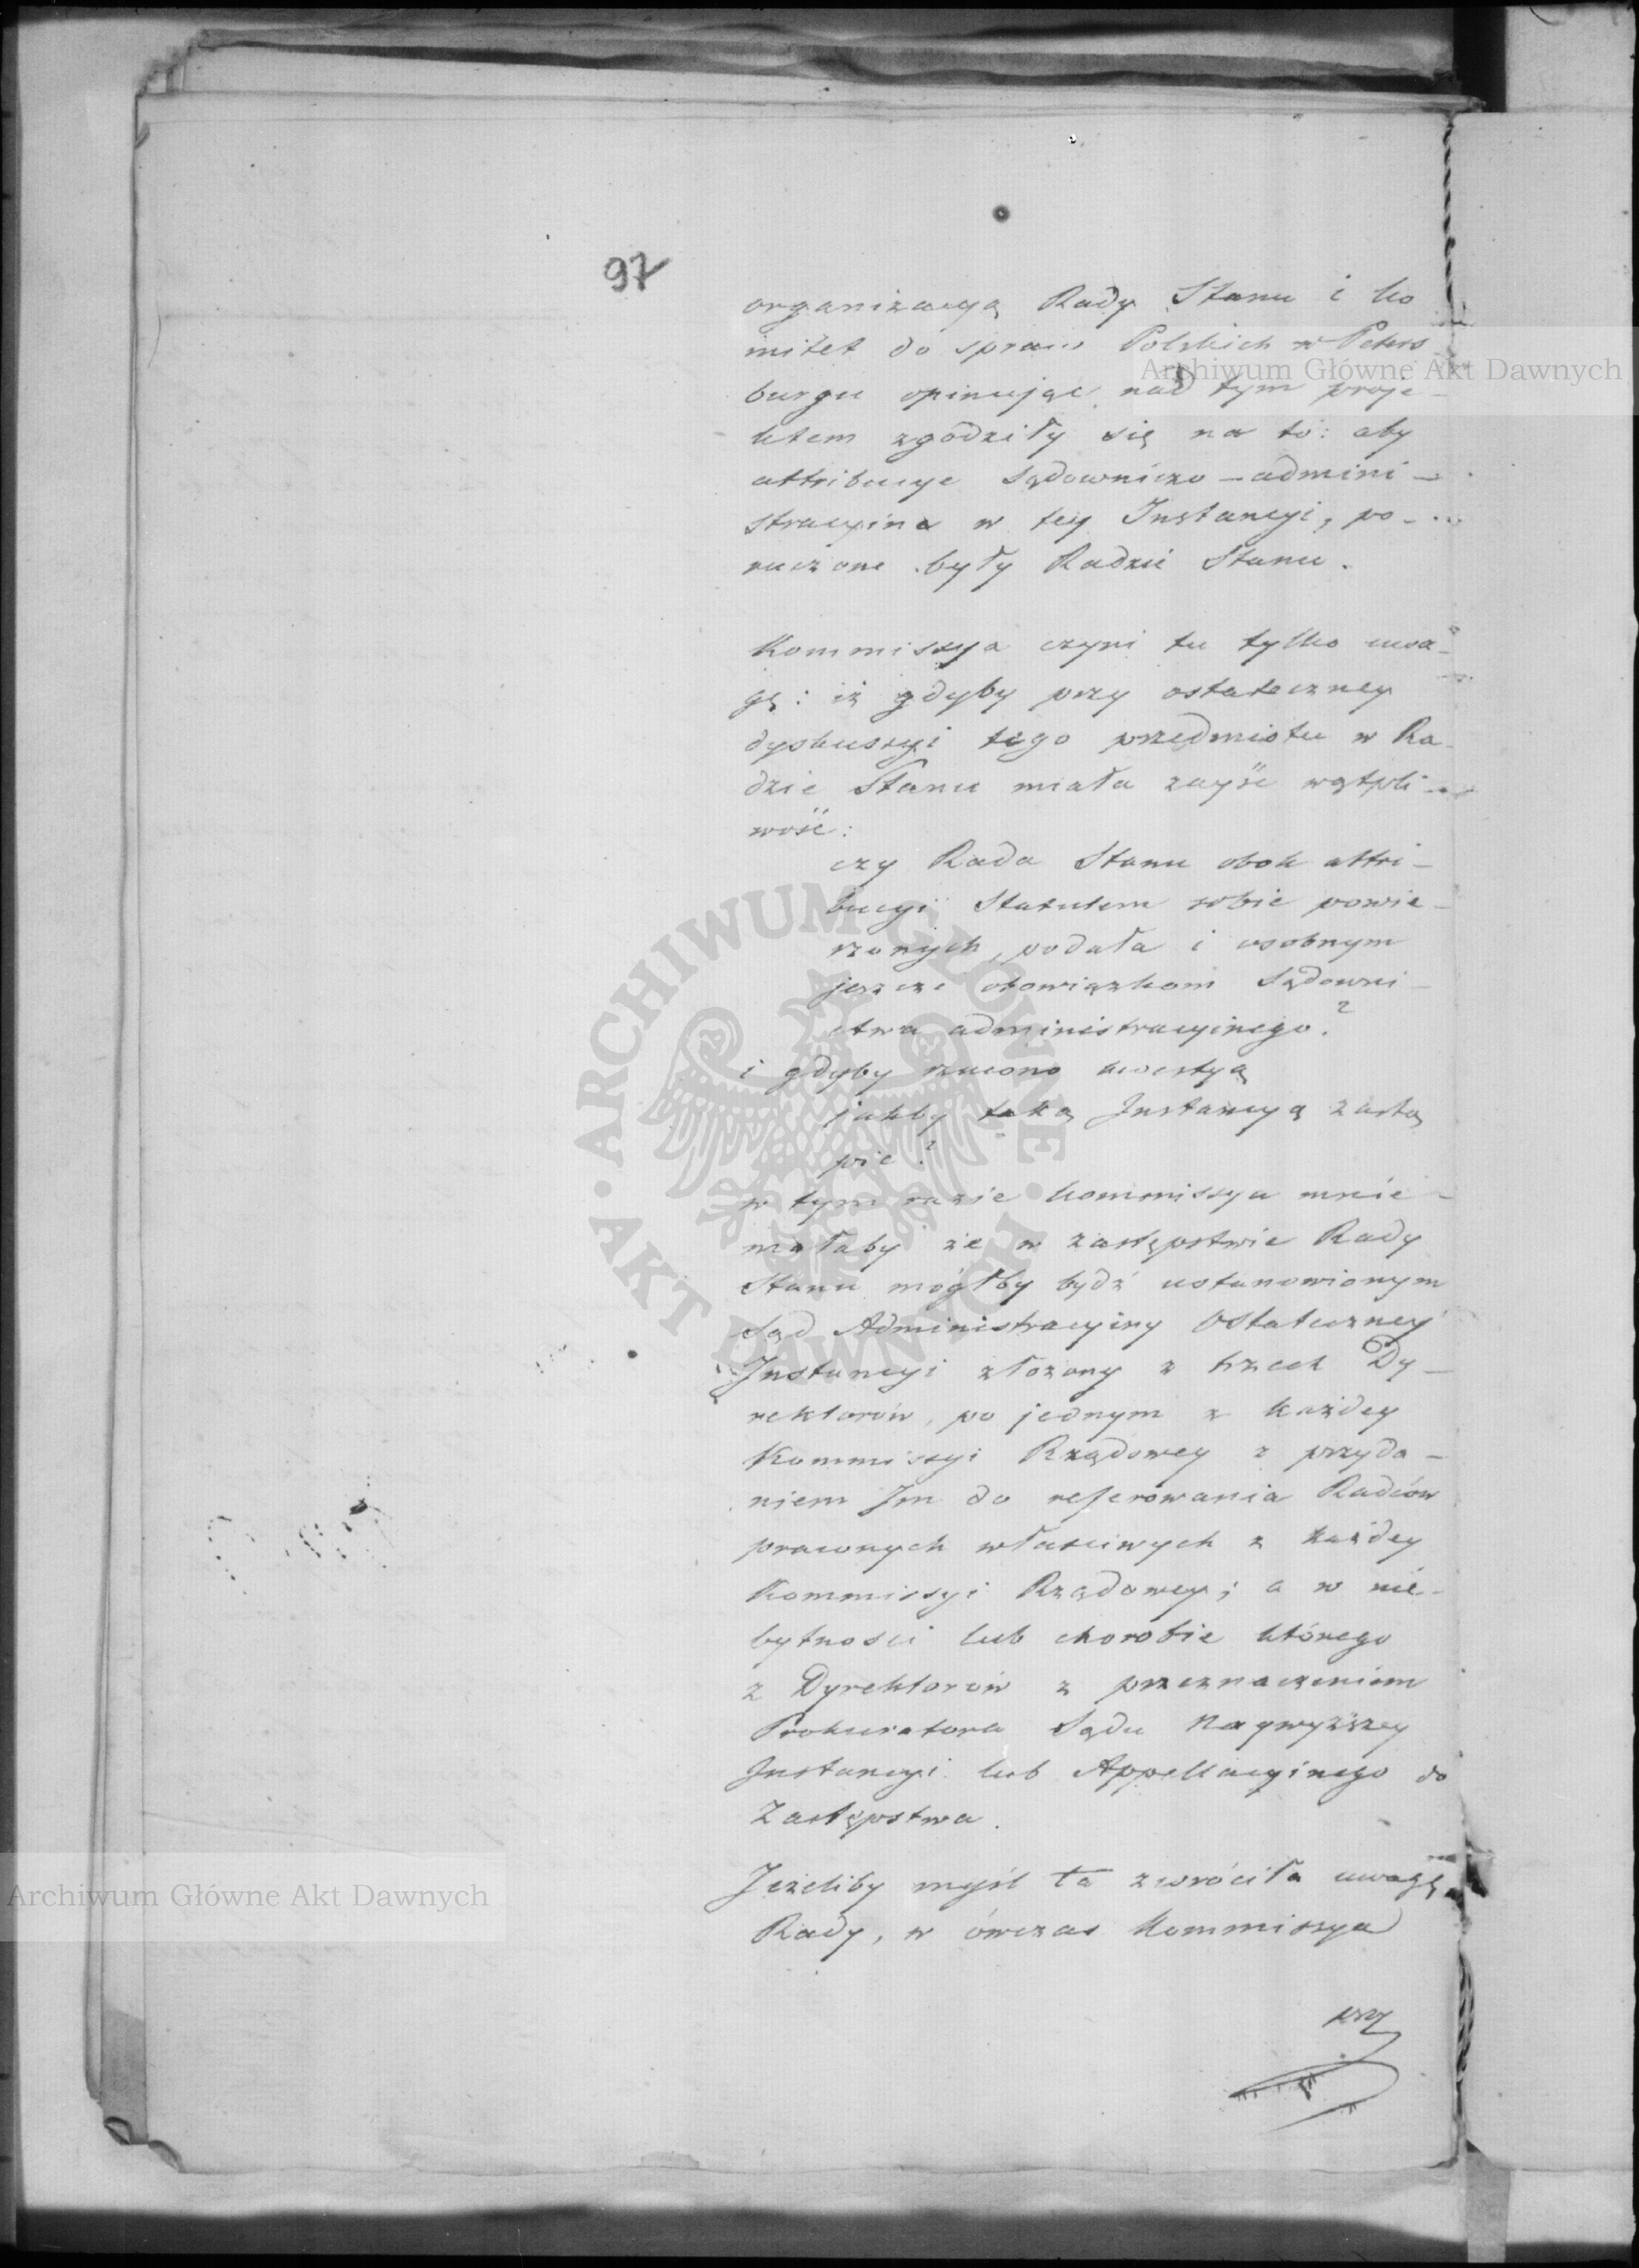 97
organizacyą Rady Stanu i ko
mitet do spraw Polskich w Peters
burgu opinując nad tym proje-
ktem zgodziły się na to: aby
attribucye Sądowniczo-admini-
stracyine w tey Instancyi, po-
ruczone były Radzie Stanu.
Kommissya czyni tu tylko uwa-
gę: iż gdyby przy ostateczney
dyskussyi tego przedmiotu w Ra-
dzie Stanu miała zayść wątpli-
wość:
czy Rada Stanu obok attri-
bucyi Statutem sobie powie-
rzonych, podoła i osobnym
jeszcze obowiązkom Sądowni-
ctwa administracyinego?
i gdyby rzucono kwestyą
jakby taką Instancyą zastą
pić?
w tym razie kommissya mnie-
małaby że w zastępstwie Rady
Stanu mógłby bydź ustanowionym
Sąd Administracyiny Ostateczney
Instancyi złożony z trzech Dy-
rektorów, po jednym z każdey
Kommissyi Rządowey z przyda-
niem Im do referowania Radców
prawnych właściwych z każdey
Kommissyi Rządowey; a w nie-
bytności lub chorobie którego
z Dyrektorów z przeznaczeniem
Prokuratora Sądu Naywyższey
Instancyi lub Appellacyinego do
Zastępstwa.
Jeżeliby myśl ta zwróciła uwagę
Rady, w ówczas Kommissya
przy
Archiwum Główne Akt Dawnych
ARCHIWUM GŁÓWNE AKT DAWNYCH
Archiwum Główne Akt Dawnych